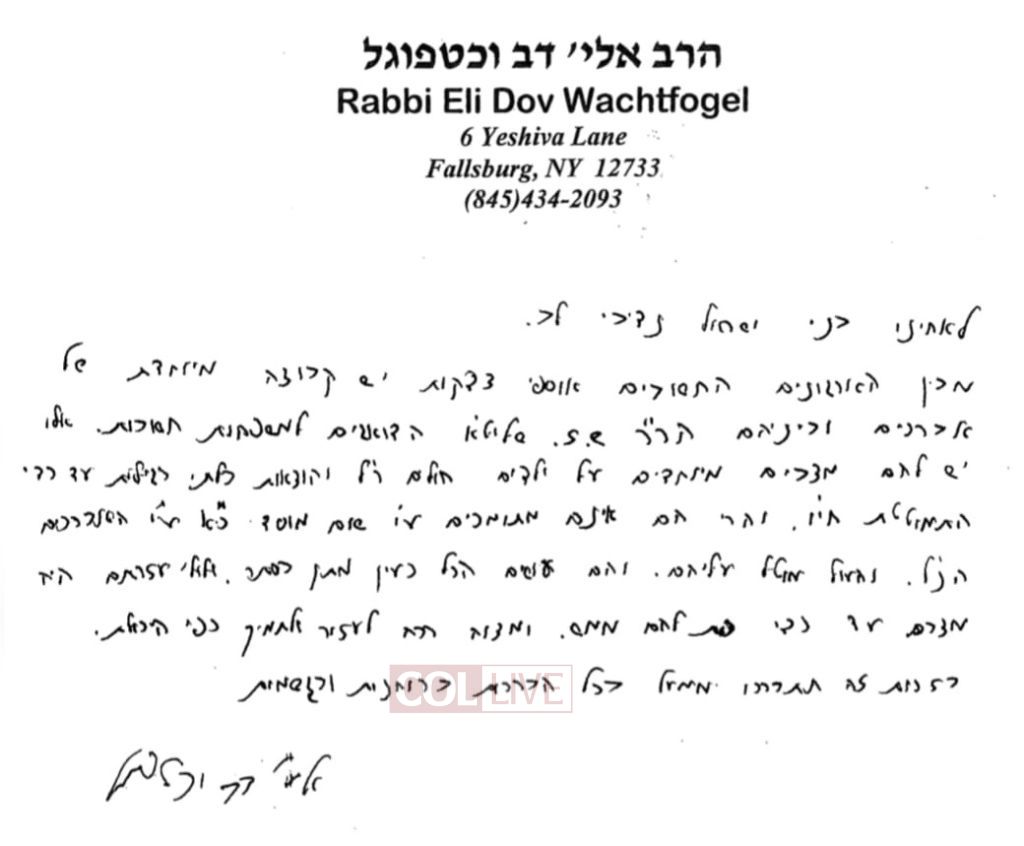 הרב אלי׳ דב וכטפוגל
Rabbi Eli Dov Wachtfogel
6 Yeshiva Lane
Fallsburg, NY 12733
(845)434-2093
לאחינו בני ישראל נדיבי לב.
מבין הארגונים החשובים אוספי צדקות יש קבוצה מיוחדת של
אברכים וביניהם הר״ר ש.ז. שליט״א הדואגים למשפחות חשובות. אלו
יש להם מצבים מיוחדים על ילדים חולים ר״ל והוצאות בלתי רגילות עד כדי
התמוטטות ח״ו, והרי הם אינם מתומכים ע״י שום מוסד כ״א ע״י
הנ״ל. והעול מוטל עליהם. והם עושים הכל כעין מתן בסתר. אלולי עזרתם היה
מצבם עד כדי פת לחם ממש. ומצוה רבה לעזור ולתמיך כפי היכולת.
בזכות זה תתברכו ממעל בכל הברכות ברוחניות ובגשמיות
COL LIVE
אלי׳ דב וכטפוגל